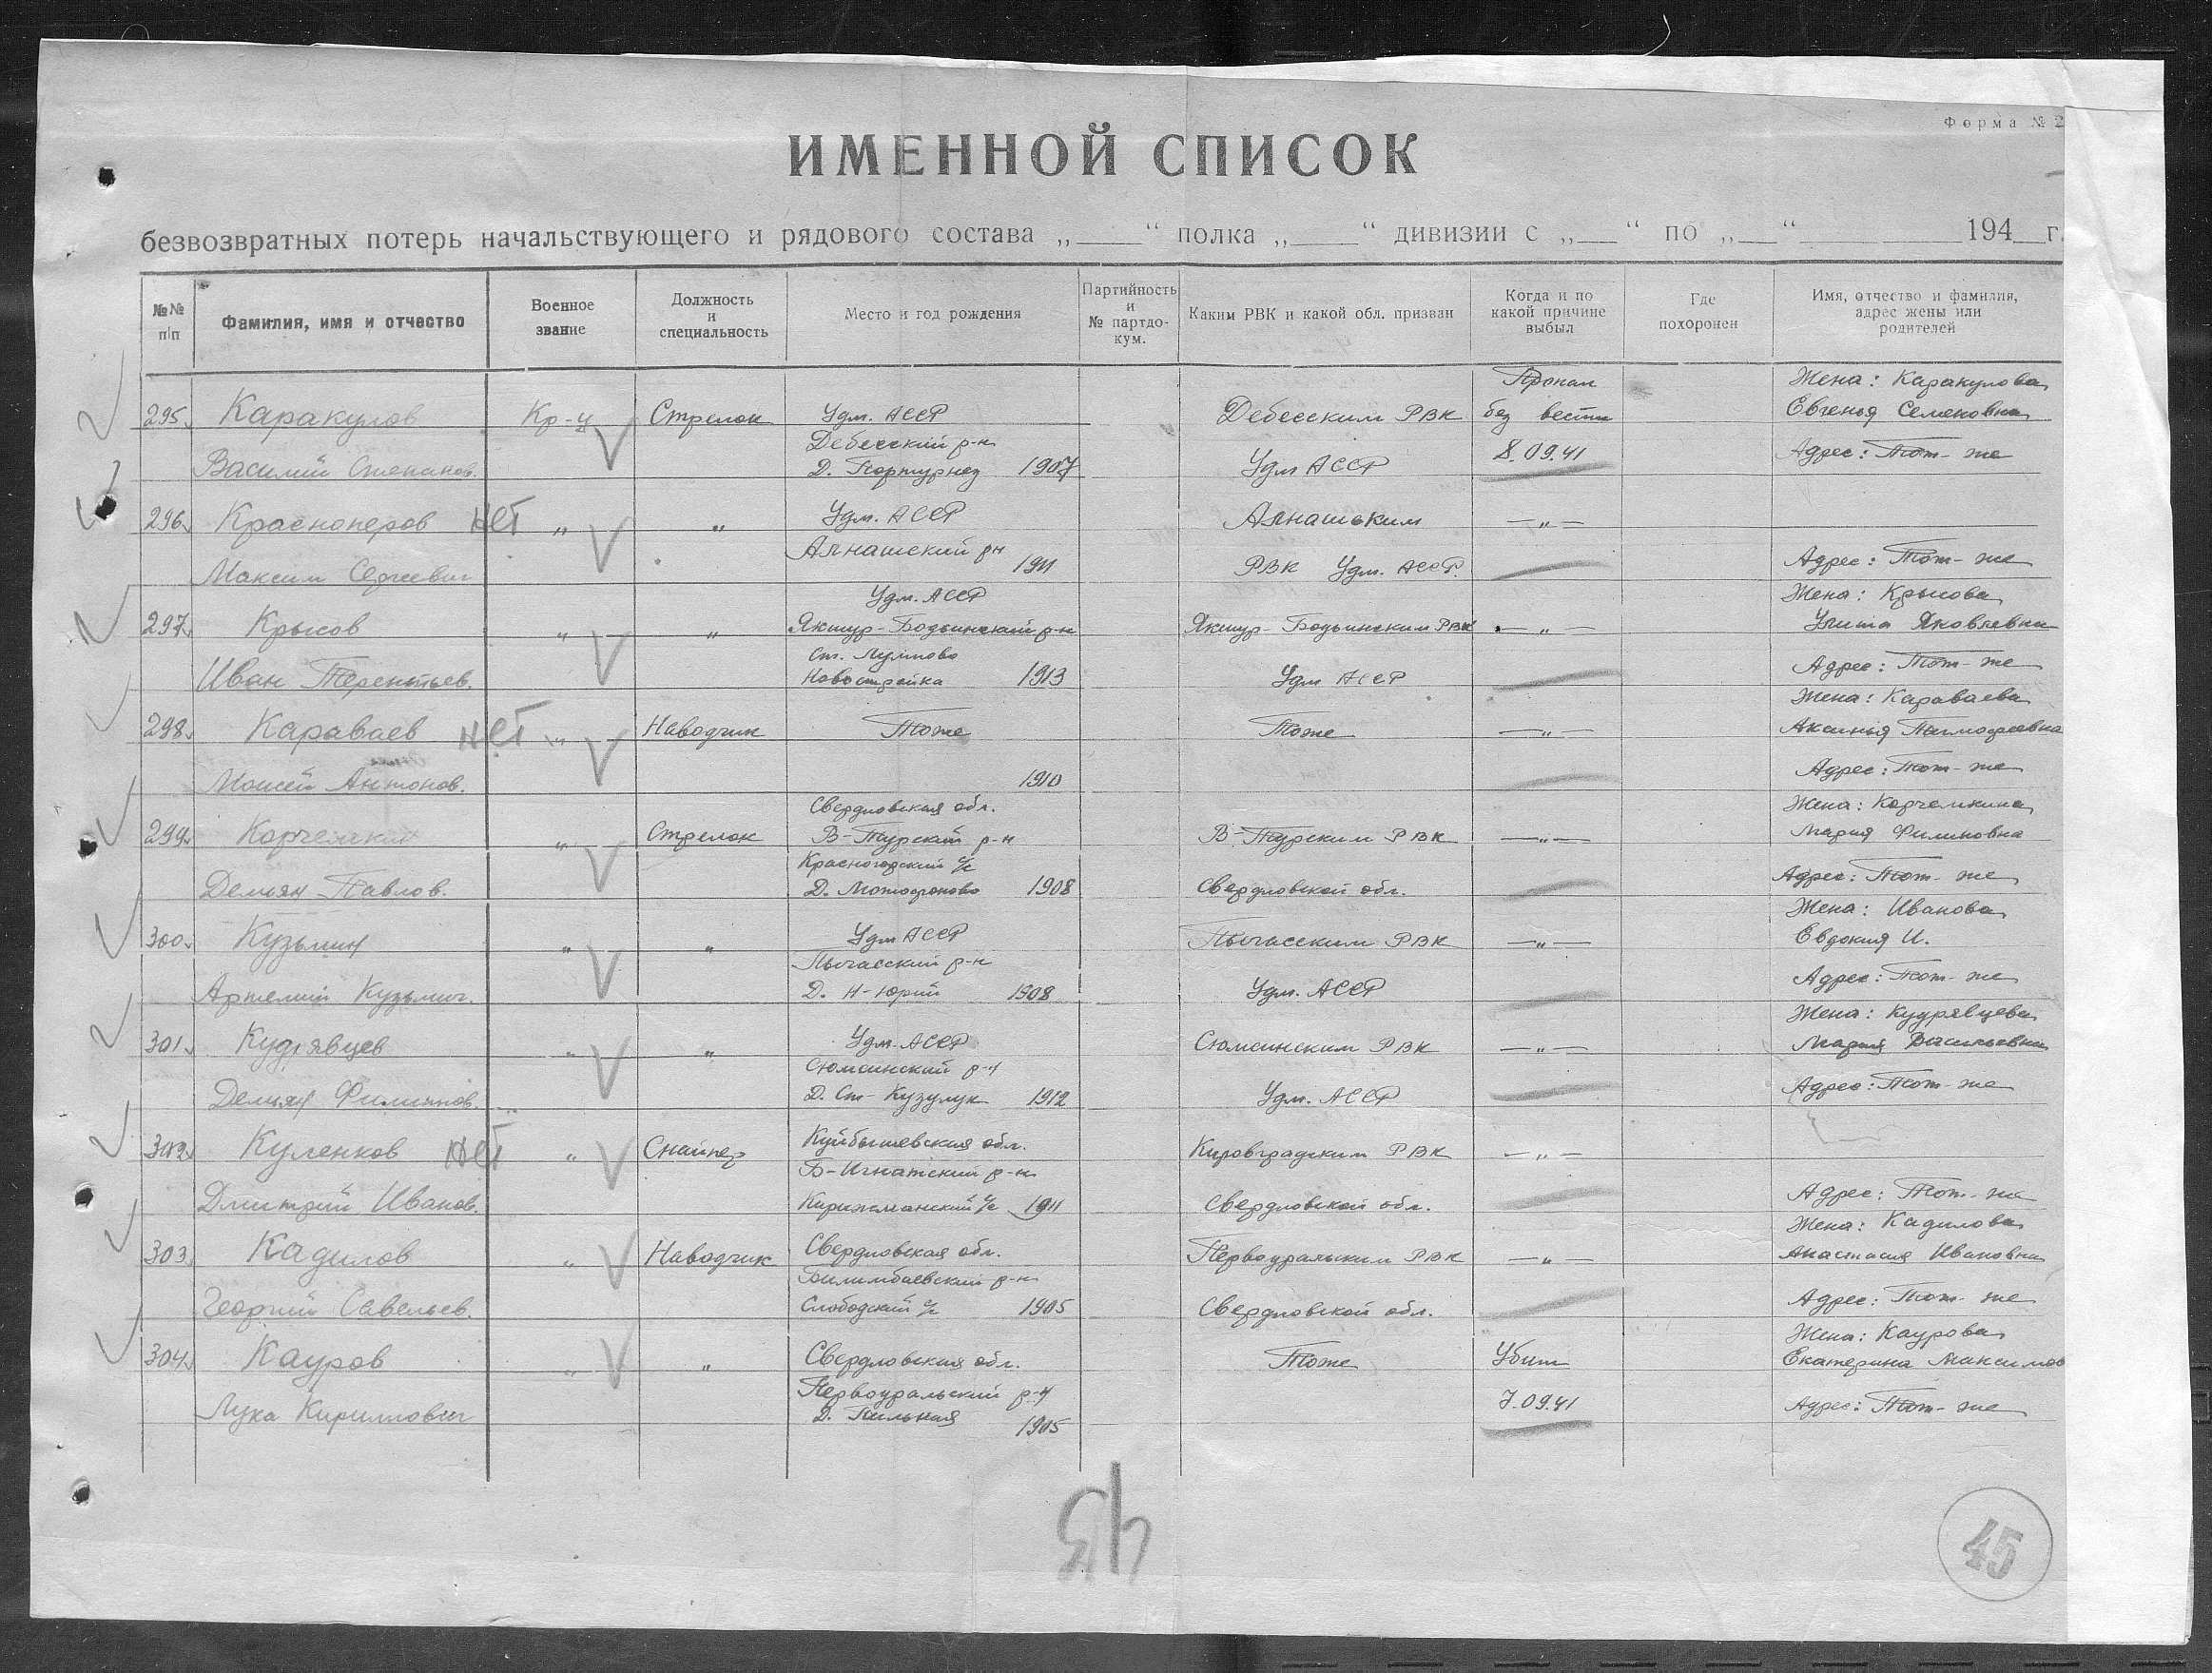 Форма № 2
ИМЕННОЙ СПИСОК
безвозвратных потерь начальствующего и рядового состава „___“ полка „___“ дивизии с „__“ по „__“ ______ 194__г.
№№ п/п Фамилия, имя и отчество Военное звание Должность и специальность Место и год рождения Партийность и № партдокум. Каким РВК и какой обл. призван Когда и по какой причине выбыл Где похоронен Имя, отчество и фамилия, адрес жены или родителей
Пропал Жена: Каракулова
295. Каракулов Кр-ц Стрелок Удм. АССР Дебесским РВК без вести Евгенья Семеновна
Дебесский р-н
Василий Степанов. Д. Портурнез 1907 Удм АССР 8.09.41 Адрес: Тот-же
296. Красноперов нет „ „ Удм. АССР Алнашским —„—
Алнашский рн
Максим Сергеевич 1911 РВК Удм. АССР. Адрес: Тот-же
Удм. АССР Жена: Крысова
297. Крысов „ „ Якшур-Бодьинский р-н Якшур-Бодьинским РВК —„— Яковлевна
Ст.
Иван Терентьев. Новостройка 1913 Удм АССР Адрес: Тот-же
Жена: Караваева
298. Караваев нет „ Наводчик Тоже Тоже —„— Аксинья Тимофеевна
Моисей Антонов. 1910 Адрес: Тот-же
Свердловская обл. Жена: Корчемкина
299. Корчемкин „ Стрелок В-Турский р-н В-Турским РВК —„— Мария Филиповна
Красногорский с/с
Демян Павлов. Д. 1908 Свердловской обл. Адрес: Тот-же
Жена: Иванова
300. Кузьмин „ „ Удм АССР Пычасским РВК —„— Евдокия И.
Пычасский р-н
Артемий Кузьмич. Д. Н-Юрий 1908 Удм. АССР Адрес: Тот-же
Жена: Кудрявцева
301. Кудрявцев „ „ Удм. АССР Сюмсинским РВК —„— Мария Васильевна
Сюмсинский р-н
Демян Филиппов. Д. Ст-Кузулук 1912 Удм. АССР Адрес: Тот-же
302. Куленков нет „ Снайпер Куйбышевская обл. Кировградским РВК —„—
Б-Игнатский р-н
Дмитрий Иванов. Киржеманский с/с 1911 Свердловской обл. Адрес: Тот-же
Жена: Кадилова
303. Кадилов „ Наводчик Свердловская обл. Первоуральским РВК —„— Анастасия Ивановна
Билимбаевский р-н
Георгий Савельев. Слободский с/с 1905 Свердловской обл. Адрес: Тот-же
Жена: Каурова
304. Кауров „ „ Свердловская обл. Тоже Убит Екатерина Максимов
Первоуральский р-н
Лука Кириллович Д. Пильная 1905 7.09.41 Адрес: Тот-же
43
45